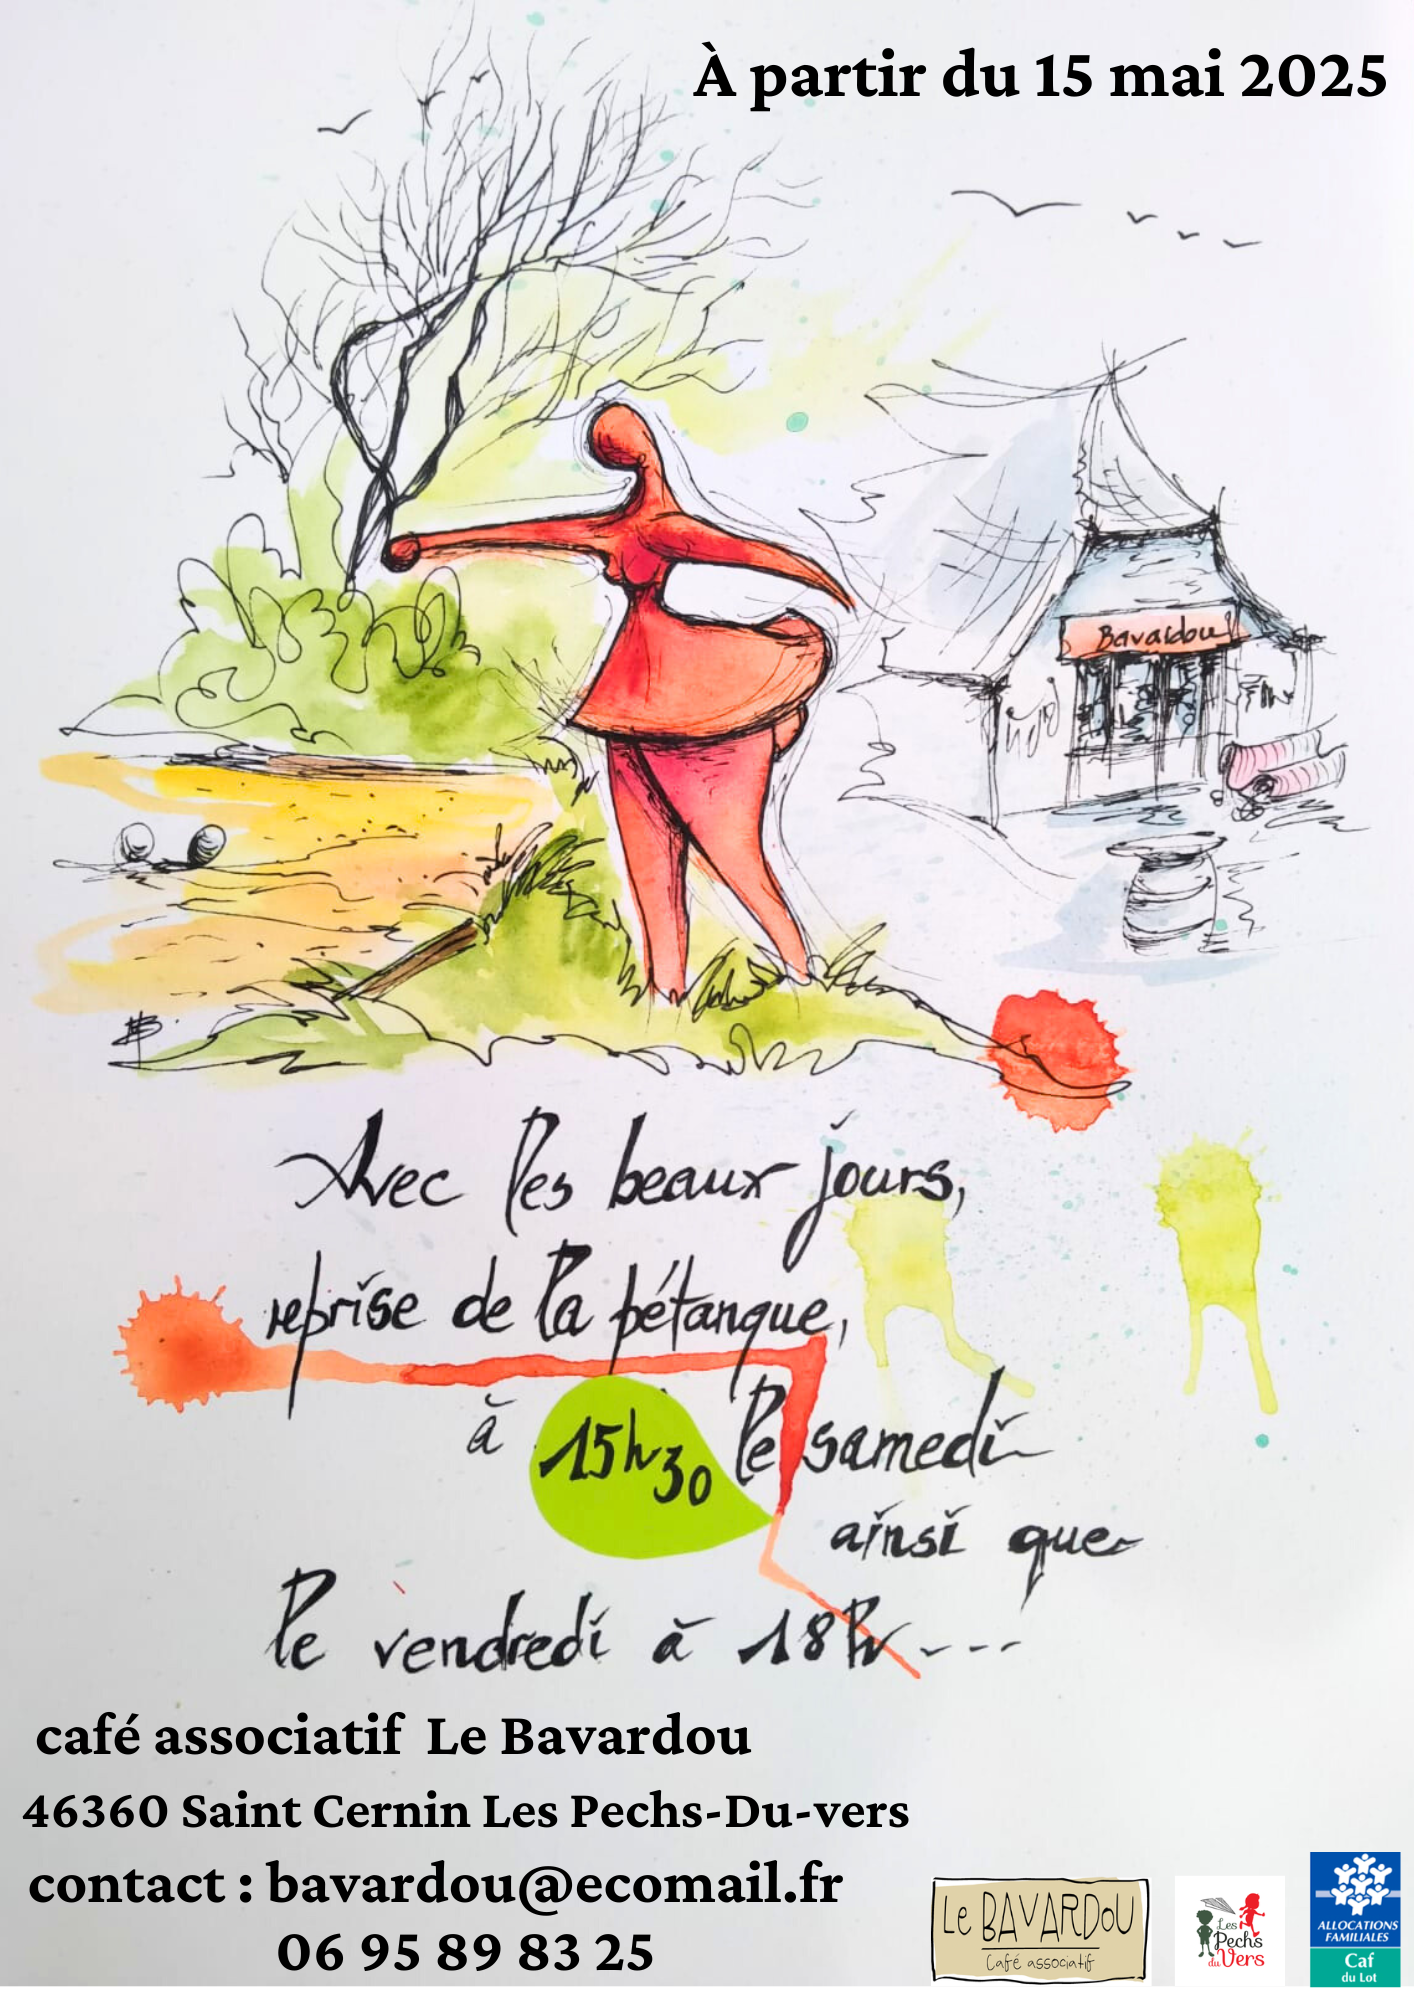 À partir du 15 mai 2025
Bavardou
Avec les beaux jours,
reprise de la pétanque,
à 15h30 le samedi
ainsi que
le vendredi à 18h---
café associatif Le Bavardou
46360 Saint Cernin Les Pechs-Du-vers
contact : bavardou@ecomail.fr
06 95 89 83 25
Le BAVARDoU
Café associatif
Les
Pechs
du Vers
ALLOCATIONS
FAMILIALES
Caf
du Lot